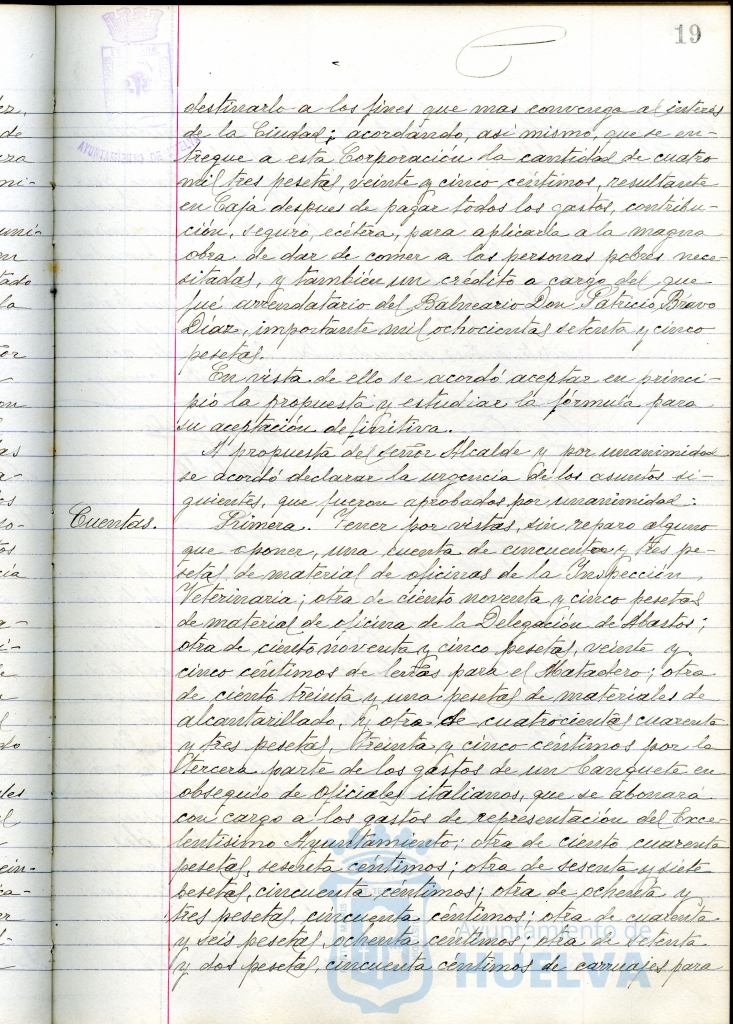 19
destinarlo a los fines que mas convenga al interés
de la Ciudad; acordando, asi mismo, que se en-
tregue a esta Corporación la cantidad de cuatro
mil tres pesetas, veinte y cinco céntimos, resultante
en Caja despues de pagar todos los gastos, contribu-
ción, seguro, ecétera, para aplicarla a la magna
obra de dar de comer a las personas pobres nece-
sitadas, y también un crédito a cargo del que
fué arrendatario del Balneario Don Patricio Bravo
Diaz, importante mil ochocientas setenta y cinco
pesetas.
En vista de ello se acordó aceptar en princi-
pio la propuesta y estudiar la fórmula para
su aceptación definitiva.
A propuesta del Señor Alcalde y por unanimidad
se acordó declarar la urgencia de los asuntos si-
guientes, que fueron aprobados por unanimidad:
Cuentas.
Primera. Tener por vistas, sin reparo alguno
que oponer, una cuenta de cincuenta y tres pe-
setas de material de oficinas de la Inspección
Veterinaria; otra de ciento noventa y cinco pesetas
de material de oficina de la Delegación de Abastos;
otra de ciento noventa y cinco pesetas, veinte y
cinco céntimos de leñas para el Matadero; otra
de ciento treinta y una pesetas de materiales de
alcantarillado, y otra de cuatrocientas cuarenta
y tres pesetas, treinta y cinco céntimos por la
tercera parte de los gastos de un banquete en
obsequio de oficiales italianos, que se abonará
con cargo a los gastos de representación del Exce-
lentísimo Ayuntamiento; otra de ciento cuarenta
pesetas, sesenta céntimos; otra de sesenta y siete
pesetas, cincuenta céntimos; otra de ochenta y
tres pesetas, cincuenta céntimos; otra de cuarenta
y seis pesetas, ochenta céntimos; otra de setenta
y dos pesetas, cincuenta céntimos de carruajes para
Ayuntamiento de
HUELVA